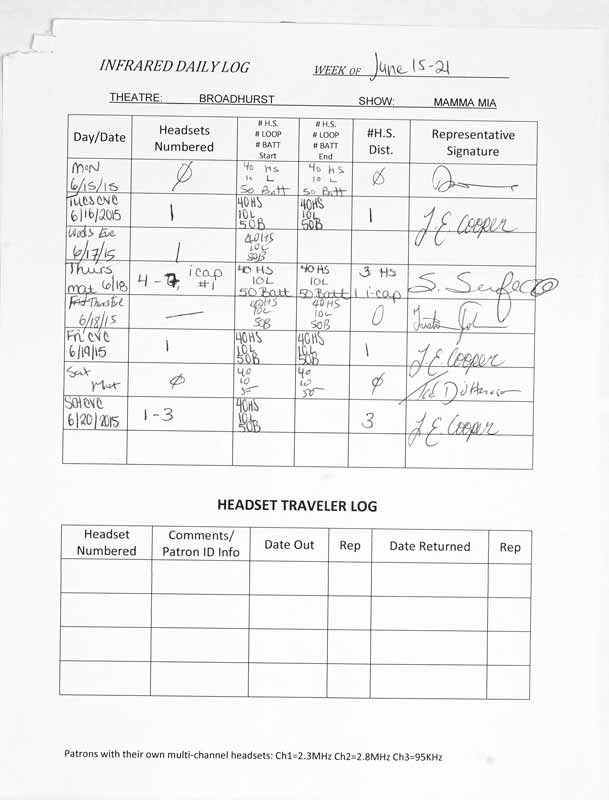 INFRARED DAILY LOG WEEK OF June 15-21
THEATRE: BROADHURST SHOW: MAMMA MIA
Day/Date Headsets Numbered # H.S. # LOOP # BATT Start # H.S. # LOOP # BATT End #H.S. Dist. Representative Signature
Mon 6/15/15 Ø 40 HS 10 L 50 Batt 40 HS 10 L 50 Batt Ø
Tues eve 6/16/2015 1 40HS 10L 50B 40HS 10L 50B 1 J.E. Cooper
Weds Eve 6/17/15 1 40HS 10L 50B
Thurs mat 6/18 4 - 7, icap #1 40 HS 10L 50 Batt 40 HS 10L 50 Batt 3 HS 1 i-cap S.
Thurs Eve 6/18/15 — 40HS 10L 50B 40HS 10L 50B 0 Justin
Fri eve 6/19/15 1 40HS 10L 50B 40HS 10L 50B 1 J.E. Cooper
Sat Mat Ø 40 10 50 40 10 50 Ø Ted
Sat eve 6/20/2015 1-3 40HS 10L 50B 3 J.E. Cooper
HEADSET TRAVELER LOG
Headset Numbered Comments/ Patron ID Info Date Out Rep Date Returned Rep
Patrons with their own multi-channel headsets: Ch1=2.3MHz Ch2=2.8MHz Ch3=95KHz